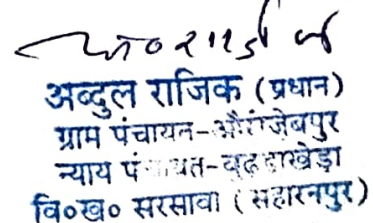 अब्दुल राजिक (प्रधान)
ग्राम पंचायत-औरंगजेबपुर
न्याय पंचायत-बुढ्ढाखेड़ा
वि०ख० सरसावा (सहारनपुर)